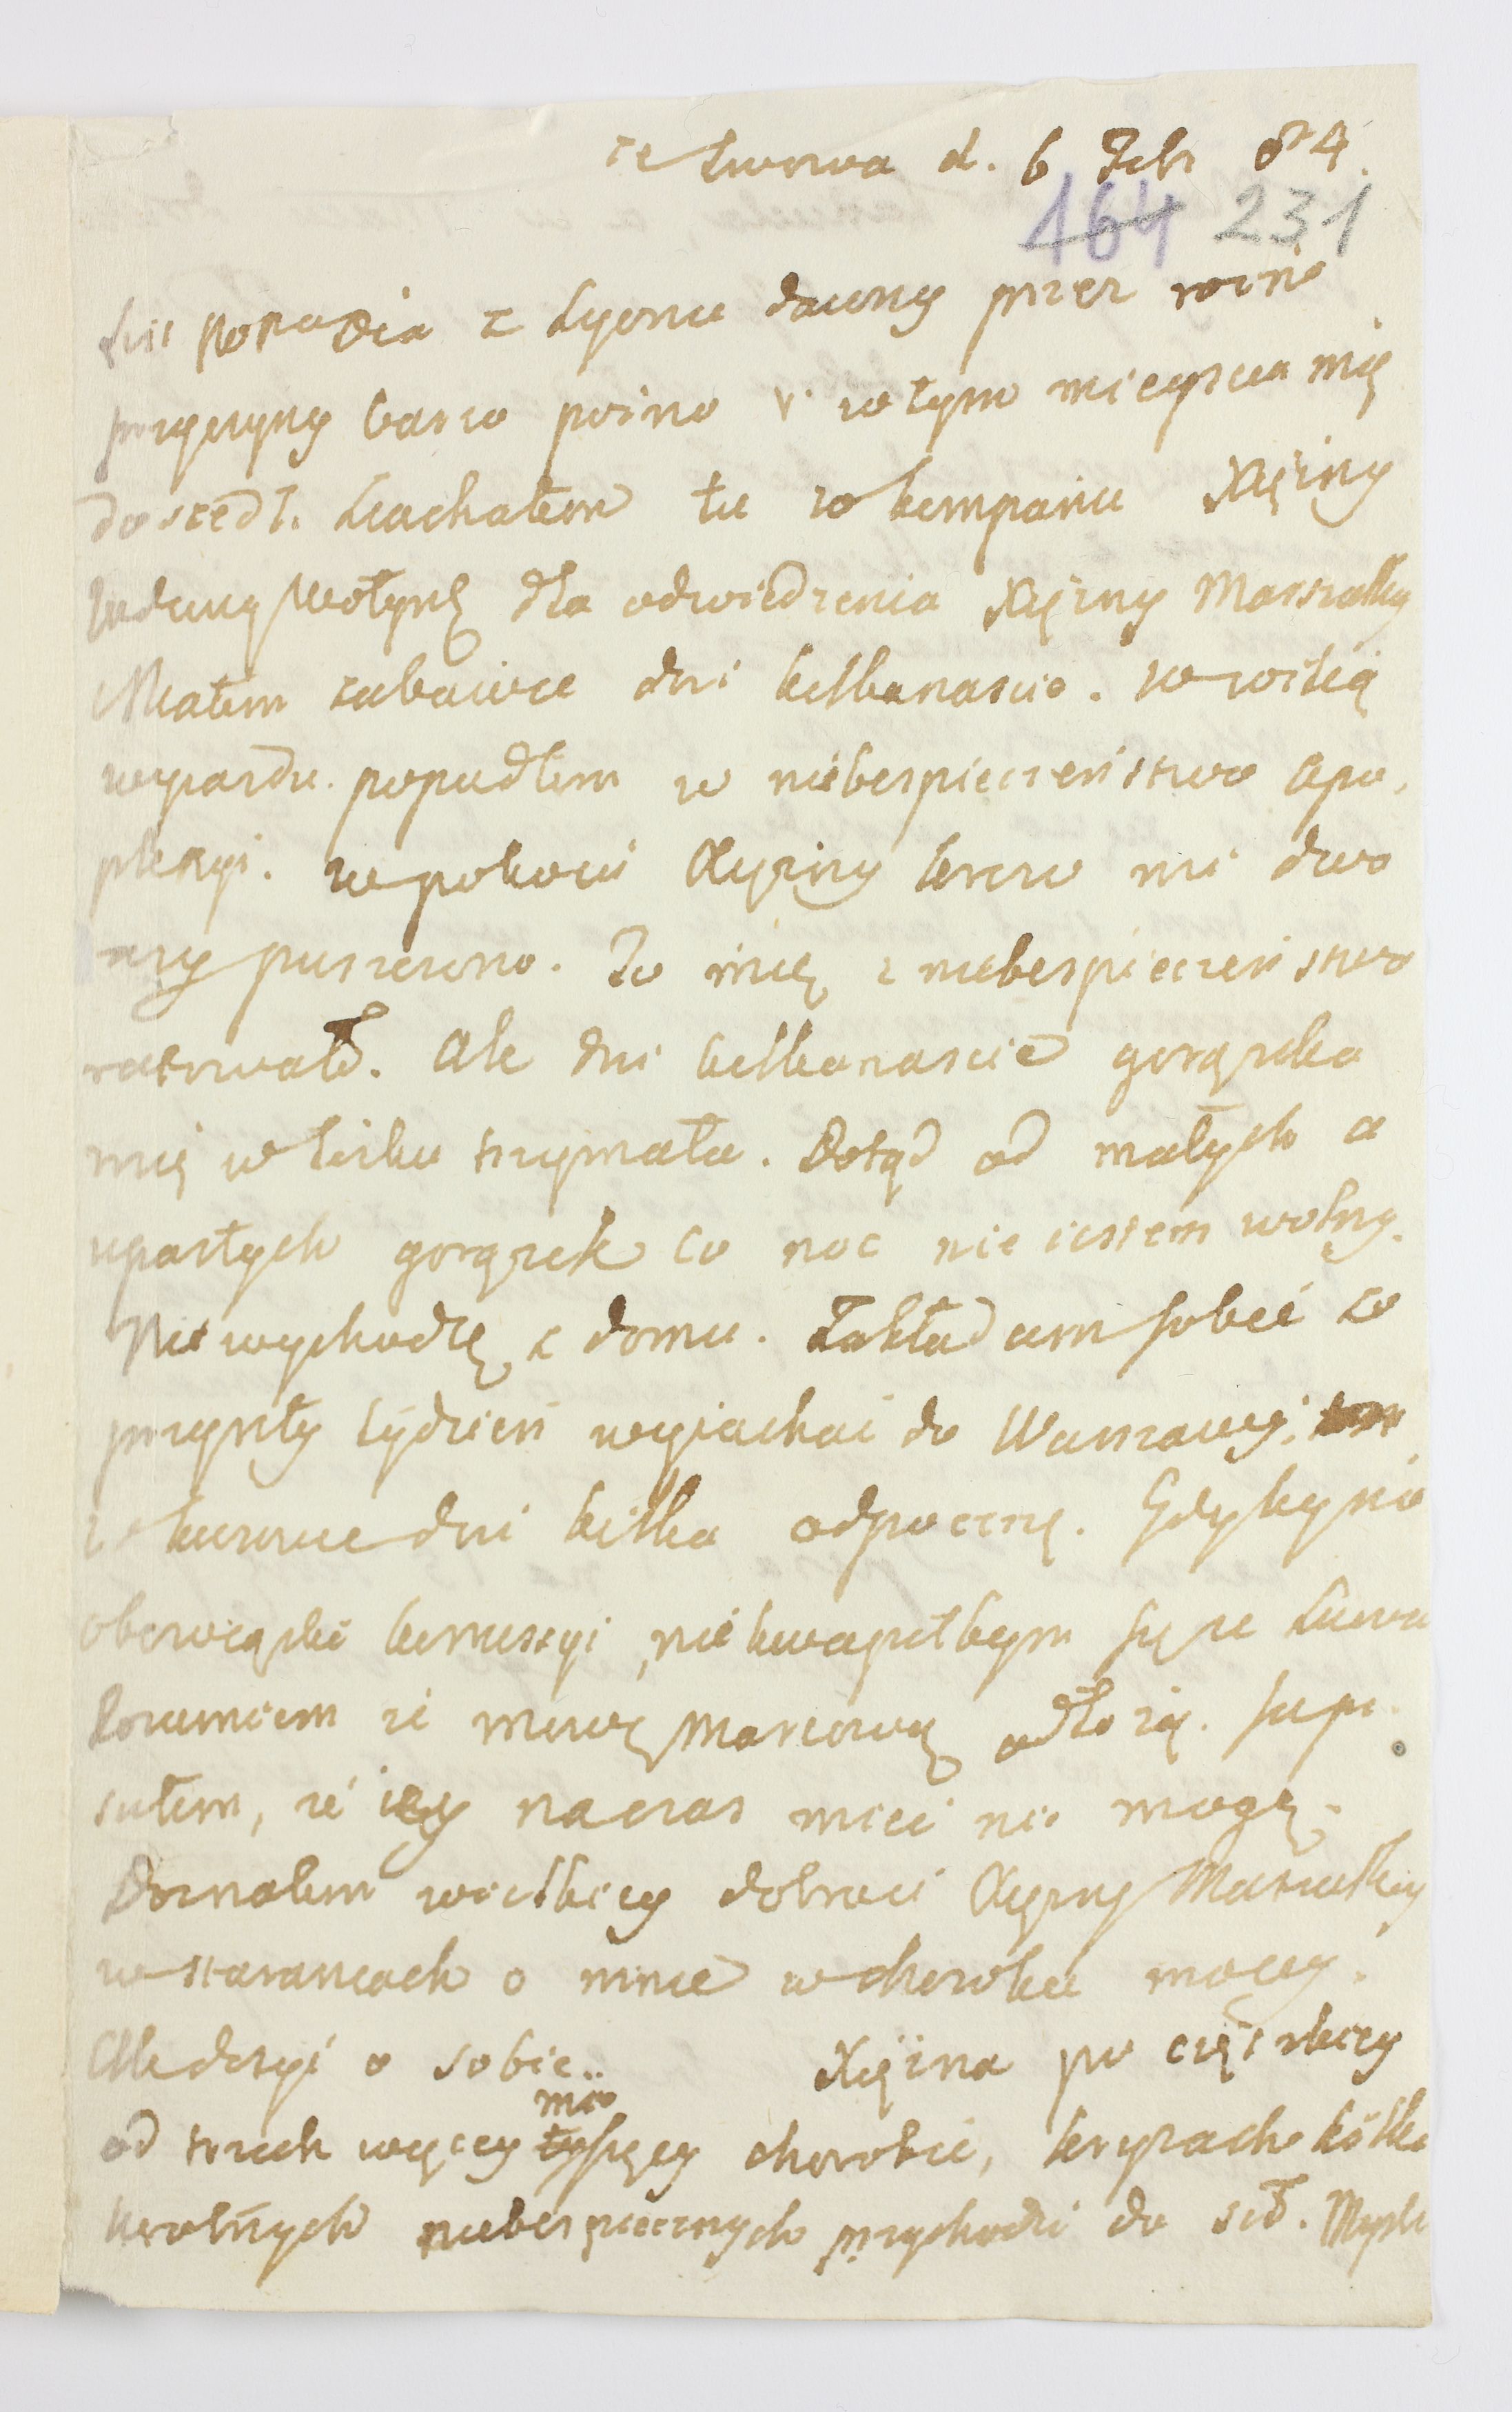 ze Lwowa d. 6 Febr 84.
164 231
List Pana z Lyonu dawny przez rożne
przyczyny barzo poźno y w tym mieyscu mię
doszedł. Ziachałem tu w kompanii Xiężny
dla odwiedzenia Xiężny Marszałky
Miałem zabawić dni kilkanascie. w wilią
wyiazdu. popadłem w niebespieczeństwo apo,
plexyi. w pokoiu Xiężny krew mi dwa
razy puszczono. To mię z niebespieczeństwa
ratowało. Ale dni kilkanascie gorączka
mię w łożku trzymała. Dotąd od małych a
upartych gorączek co noc nie iestem wolny.
Nie wychodzę z domu. Zakładam sobie w
przyszły tydzień wyiachać do Warszawy;
w Kurowie dni kilka odpocznę. Gdyby nie
obowiązki kommissyi, nie kwapiłbym się ze Lwowa
Rozumiem że mowę Marcową odłożą. Napi
sałem, że iey na czas mieć nie mogę.
Doznałem wielkiey dobroci Xiężny Marszałky
w staraniach o mnie w chorobie moiey.
Ale dosyć o sobie.. Xiężna po cięszkiey
od trzech więcey mie sięcy chorobie, kryzach kilka
krotnych niebespiecznych przychodzi do sił. Myśli